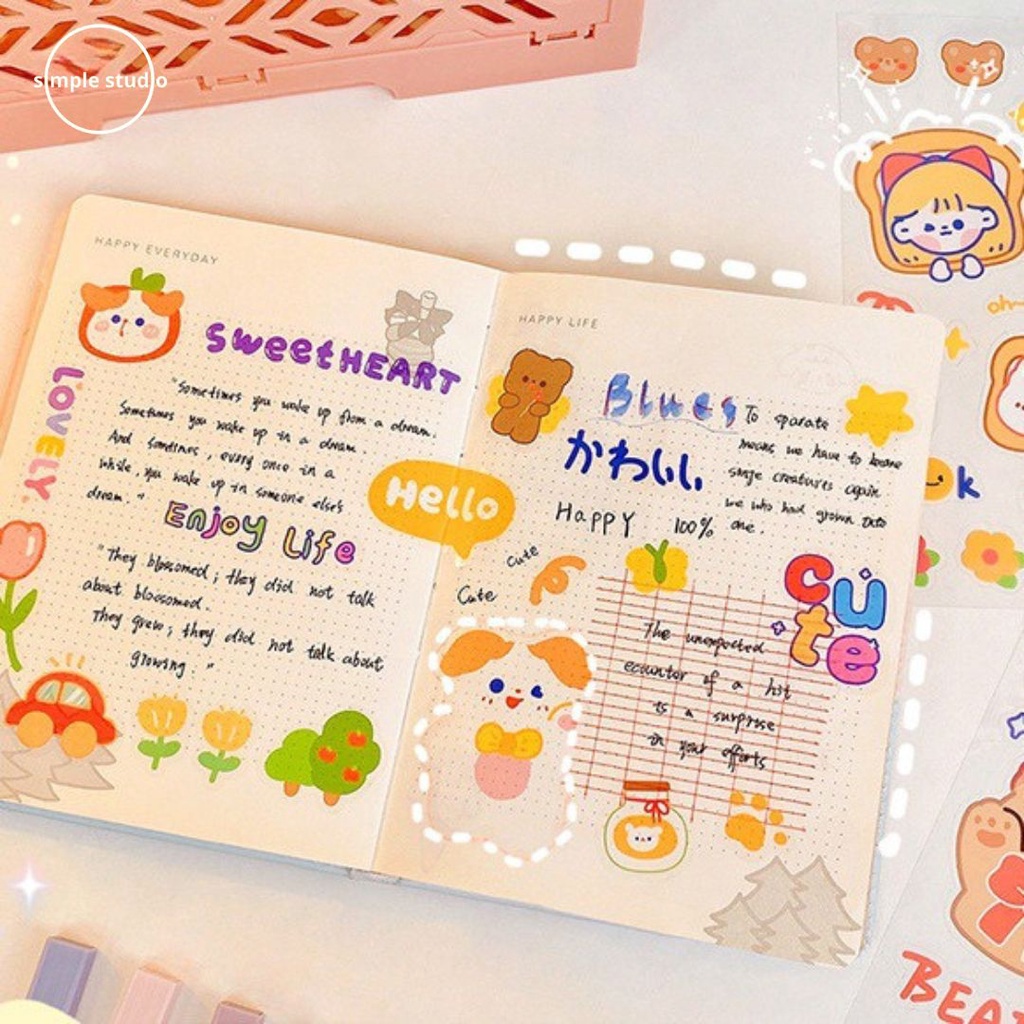 simple studio
HAPPY EVERYDAY
SweetHEART
LOVELY
"Sometimes you wake up from a dream.
Sometimes you wake up in a dream.
And somtimes, every once in a
while, you wake up in someone else's
dream."
Enjoy Life
"They blossomed; they did not talk
about blossomed.
They grew; they did not talk about
growing"
Hello
HAPPY LIFE
Blues
かわいい
HAPPY 100%
To
means we have to
creatures again
we who had grown into
one.
Cute
Cute
Cute
The unexpected
of a hit
is a surprise
in your efforts
oh~
k
BEA